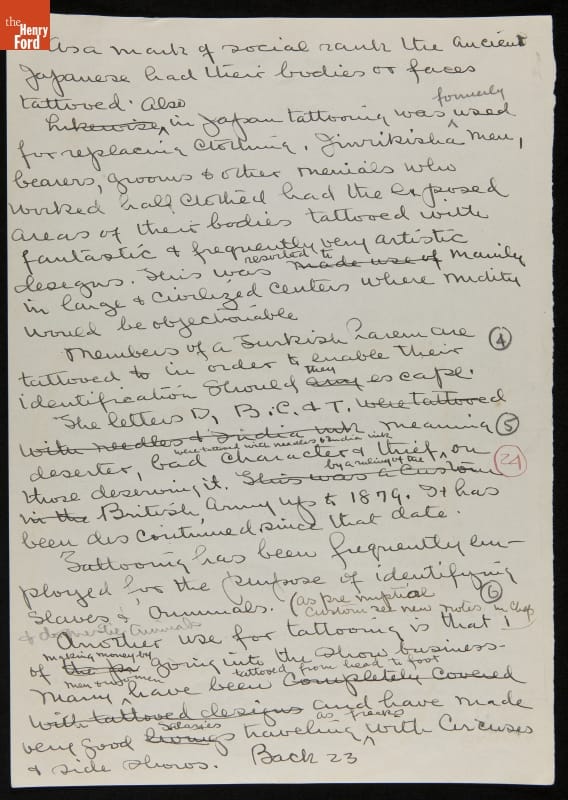 the
Henry
Ford
As a mark of social rank the ancient
Japanese had their bodies or faces
tattooed. Also
formerly
Likewise, in Japan tattooing was used
for replacing clothing. Jinrikisha men,
bearers, grooms & other menials who
worked half clothed had the exposed
areas of their bodies tattooed with
fantastic & frequently very artistic
resorted to
designs. This was made use of mainly
in large & civilized centers where nudity
would be objectionable
Members of a Turkish harem are ④
tattooed to in order to enable their
they
identification should any escape.
The letters D, B.C. & T. were tattooed
with needles & India ink meaning ⑤
were tattooed with needles & India ink
deserter, bad character & thief, on 24
by a ruling of the
those deserving it. This was a custom
in the British Army up to 1879. It has
been discontinued since that date.
Tattooing has been frequently em-
ployed for the purpose of identifying
slaves & criminals. (as pre nuptial ⑥
custom see new notes in Chap
& domestic animals 1
Another use for tattooing is that
making money by
of going into the show business-
men & women tattooed from head to foot
Many have been completely covered
with tattooed designs and have made
salaries as freaks
very good livings traveling with circuses
& side shows. Back 23